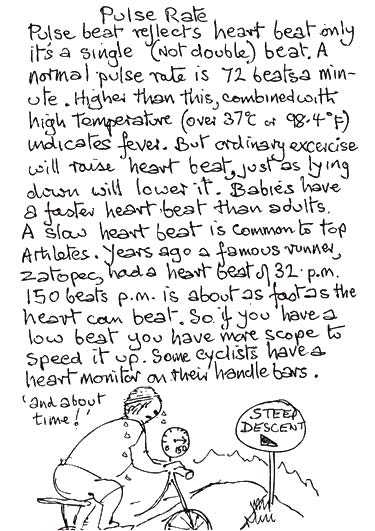 Pulse Rate
Pulse beat reflects heart beat only
it's a single (not double) beat. A
normal pulse rate is 72 beats a min-
ute. Higher than this, combined with
high temperature (over 37°C or 98.4°F)
indicates fever. But ordinary excercise
will raise heart beat, just as lying
down will lower it. Babies have
a faster heart beat than adults.
A slow heart beat is common to top
Athletes. Years ago a famous runner,
Zatopec, had a heart beat of 32 p.m.
150 beats p.m. is about as fast as the
heart can beat. So if you have a
low beat you have more scope to
speed it up. Some cyclists have a
heart monitor on their handle bars.
'and about
time!'
150
STEEP
DESCENT